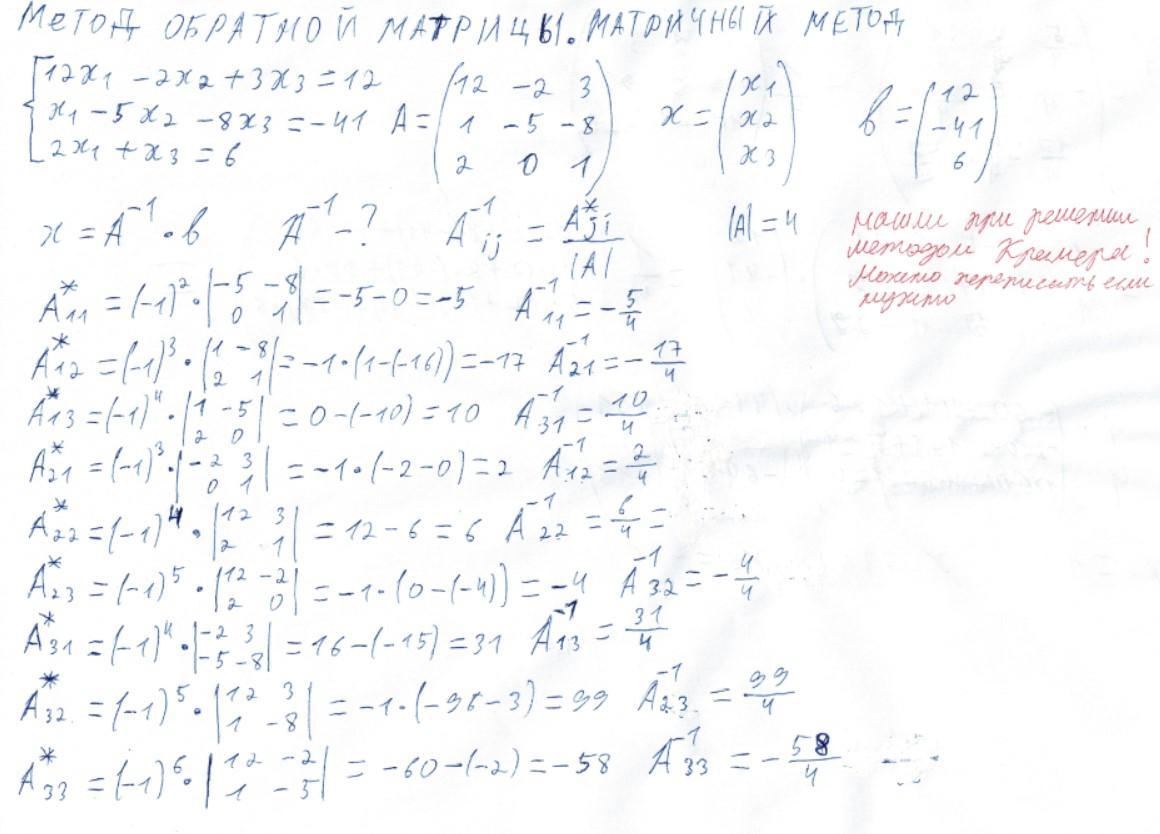 МЕТОД ОБРАТНОЙ МАТРИЦЫ. МАТРИЧНЫЙ МЕТОД
{12x1 - 2x2 + 3x3 = 12
x1 - 5x2 - 8x3 = -41
2x1 + x3 = 6
A = (12 -2 3
1 -5 -8
2 0 1)
x = (x1
x2
x3)
в = (12
-41
6)
x = A^-1 · в A^-1 - ? A^-1 ij = A* ji / |A| |A| = 4
нашли при решении
методом Крамера!
можно переписать если
нужно
A*11 = (-1)^2 · |-5 -8; 0 1| = -5-0 = -5 A^-1 11 = -5/4
A*12 = (-1)^3 · |1 -8; 2 1| = -1·(1-(-16)) = -17 A^-1 21 = -17/4
A*13 = (-1)^4 · |1 -5; 2 0| = 0-(-10) = 10 A^-1 31 = 10/4
A*21 = (-1)^3 · |-2 3; 0 1| = -1·(-2-0) = 2 A^-1 12 = 2/4
A*22 = (-1)^4 · |12 3; 2 1| = 12-6 = 6 A^-1 22 = 6/4 =
A*23 = (-1)^5 · |12 -2; 2 0| = -1·(0-(-4)) = -4 A^-1 32 = -4/4
A*31 = (-1)^4 · |-2 3; -5 -8| = 16-(-15) = 31 A^-1 13 = 31/4
A*32 = (-1)^5 · |12 3; 1 -8| = -1·(-96-3) = 99 A^-1 23 = 99/4
A*33 = (-1)^6 · |12 -2; 1 -5| = -60-(-2) = -58 A^-1 33 = -58/4